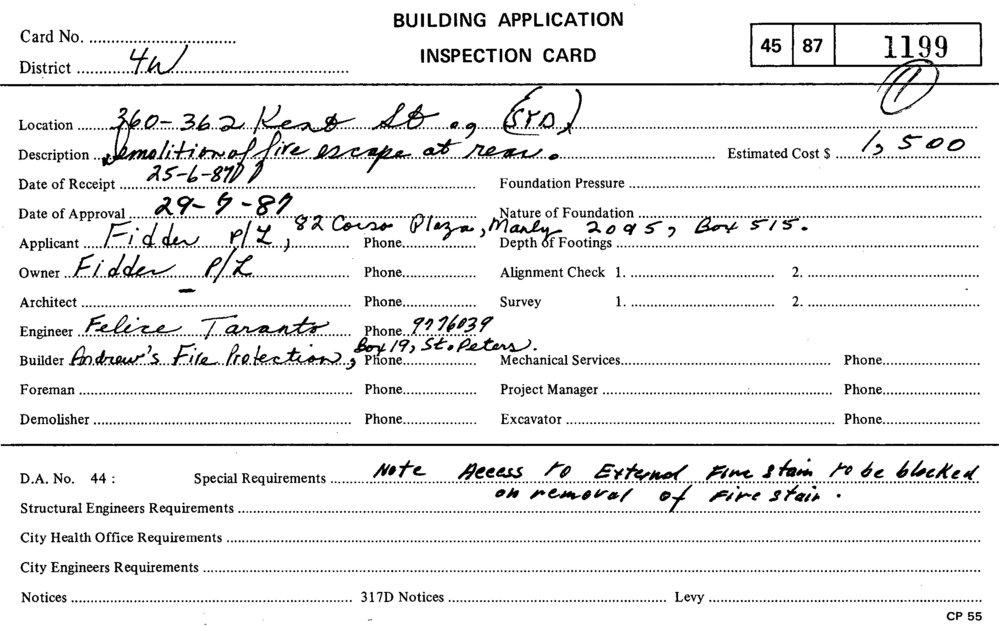 BUILDING APPLICATION
INSPECTION CARD
Card No.
District 4W
45 87 1199
11
Location 360-362 Kent St. (SYD)
Description Demolition of fire escape at rear. Estimated Cost $ 1,500
Date of Receipt 25-6-87 Foundation Pressure
Date of Approval 29-7-87 Nature of Foundation
Applicant Fidder P/L, 82 Corso Plaza, Manly 2095, Box 515. Phone Depth of Footings
Owner Fidder P/L Phone Alignment Check 1. 2.
Architect Phone Survey 1. 2.
Engineer Felice Taranto Phone 9776039
Builder Andrew's Fire Protection, Box 19, St. Peters. Phone Mechanical Services Phone
Foreman Phone Project Manager Phone
Demolisher Phone Excavator Phone
D.A. No. 44 : Special Requirements Note Access to External Fire Stair to be blocked
on removal of Fire Stair.
Structural Engineers Requirements
City Health Office Requirements
City Engineers Requirements
Notices 317D Notices Levy
CP 55